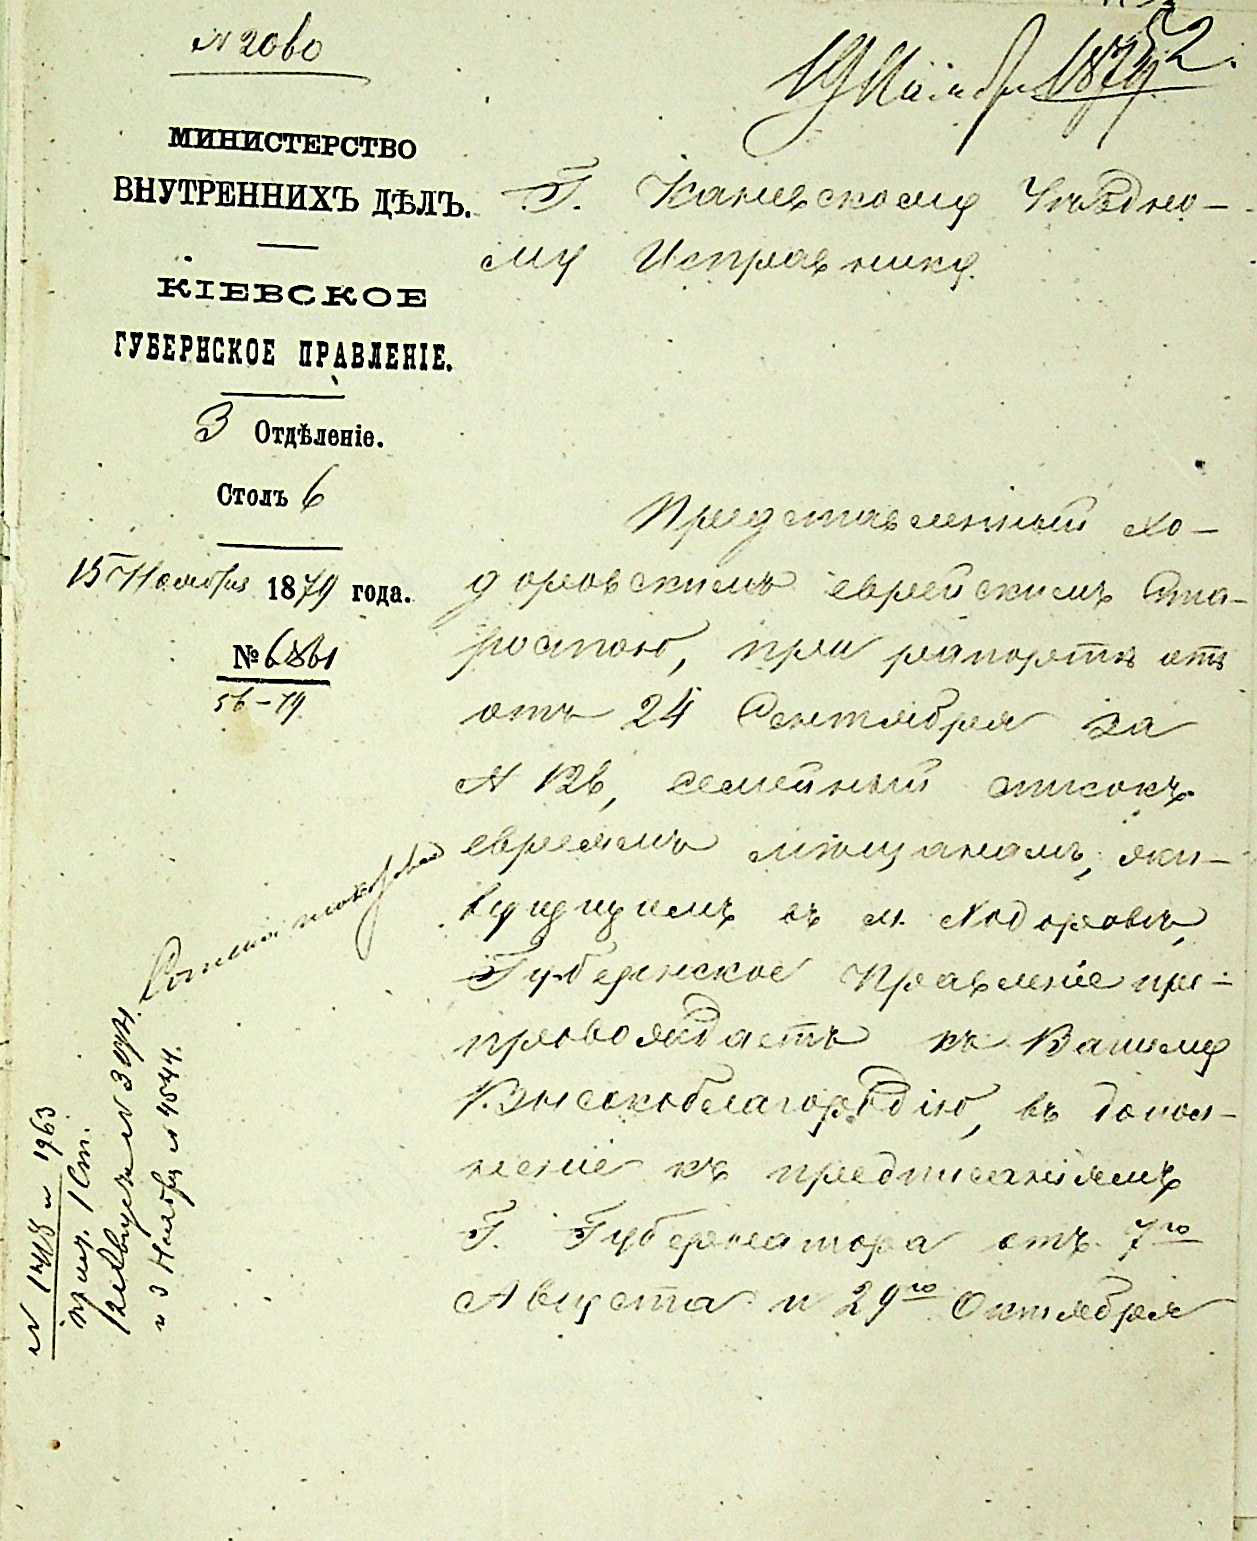 № 2060
52.
19 Ноября 1879
МИНИСТЕРСТВО
ВНУТРЕННИХЪ ДѢЛЪ.
КІЕВСКОЕ
ГУБЕРНСКОЕ ПРАВЛЕНІЕ.
3 Отдѣленіе.
Столъ 6
15 Ноября 1879 года.
№ 6861
56-79
Г. Каневскому Уѣздно-
му Исправнику.
Представленный Хо-
доровскимъ еврейскимъ Ста-
ростою, при рапортѣ
отъ 24 Сентября за
№ 126, семейный списокъ
евреямъ мѣщанамъ, жи-
вущимъ въ м. Ходоровѣ,
Губернское Правленіе пре-
провождаетъ къ Вашему
Высокоблагородію, въ допол-
неніе къ предписаніямъ
Г. Губернатора отъ 7го
Августа и 29го Октября
№ и 1963
1 Ст.
12 Августа №
и 3 Ноября № 4544.